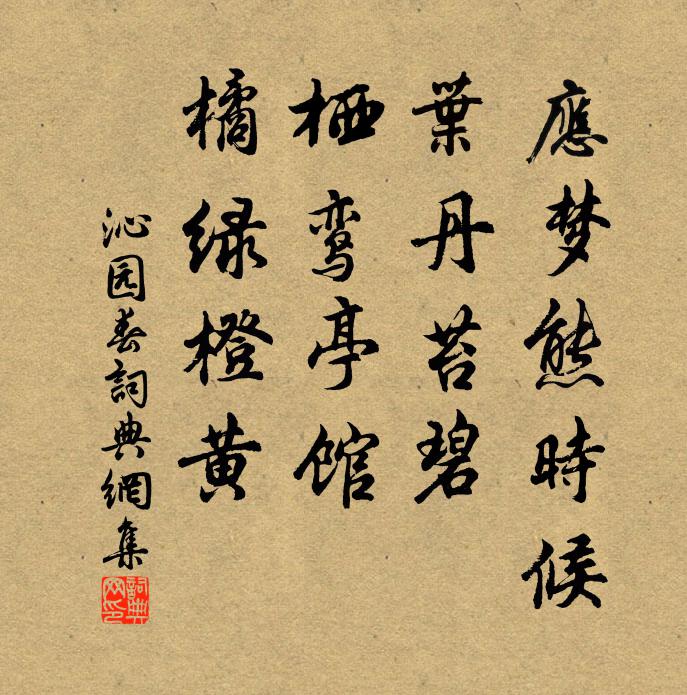 應梦熊時候
葉丹苔碧
栖鸾亭馆
橘绿橙黄
沁园春詞典網集
詞典
网印